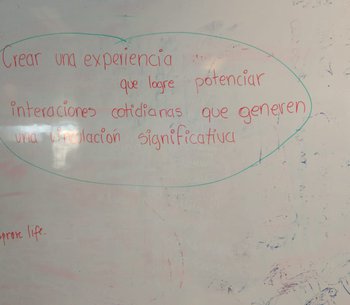 Crear una experiencia
que logre potenciar
interaciones cotidianas que generen
una significativa
life.